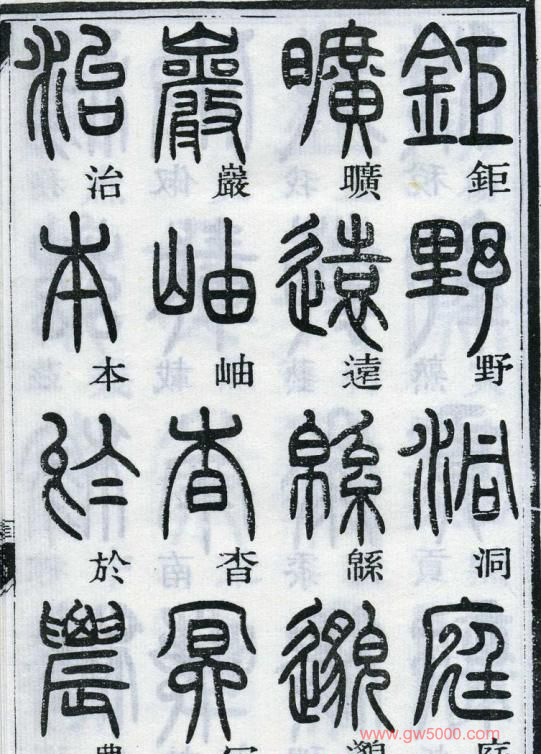 鉅野洞庭
鉅野洞庭
曠遠緜邈
曠遠緜邈
巖岫杳冥
巖岫杳冥
治本於農
治本於農
www.gw5000.com